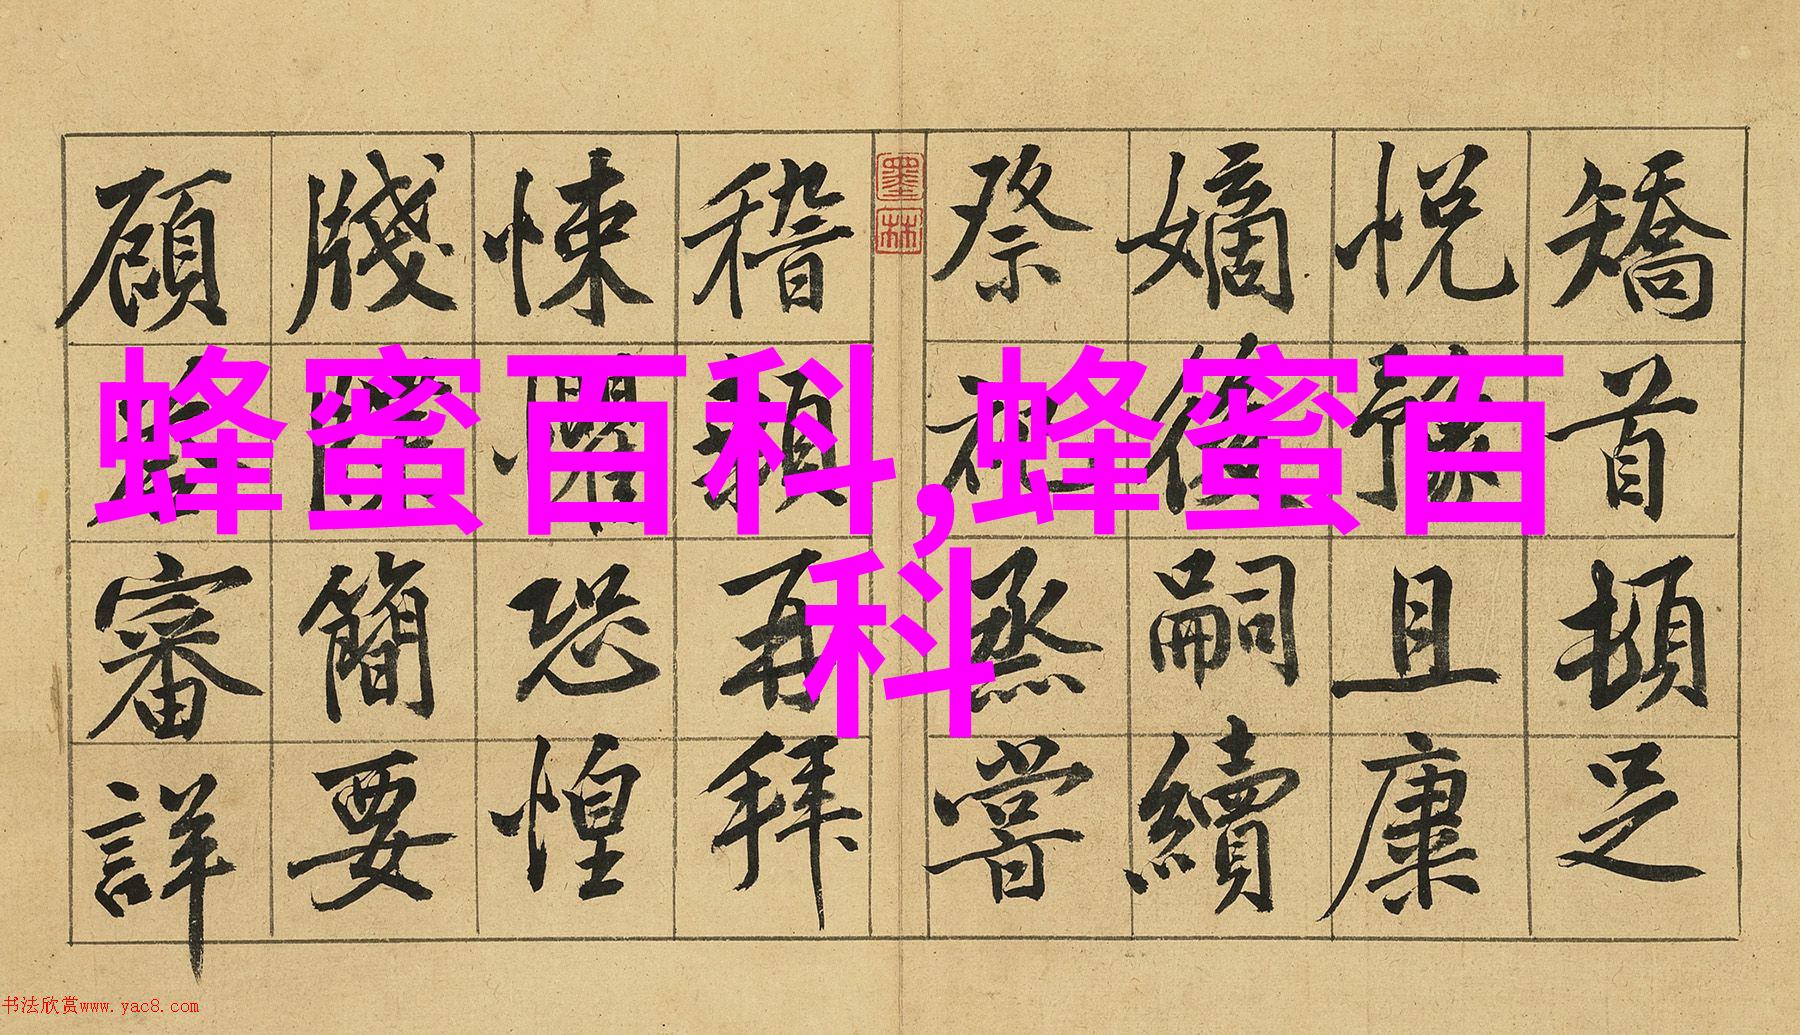 矯首頓足
悅豫且康
嫡後嗣續
祭祀烝嘗
墨林
稽顙再拜
悚懼恐惶
牋簡要
顧審詳
蜂蜜百科,蜂蜜百
科
书法欣赏www.yac8.com